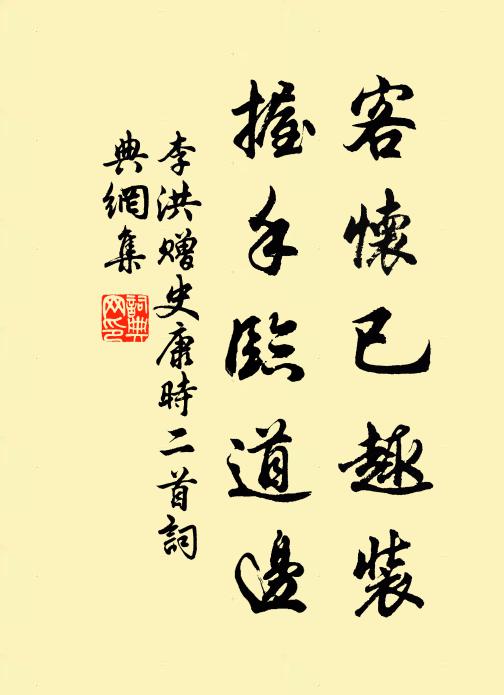 客懷已趣裝
握手臨道邊
李洪贈史康時二首詞
典網集
詞典
网印